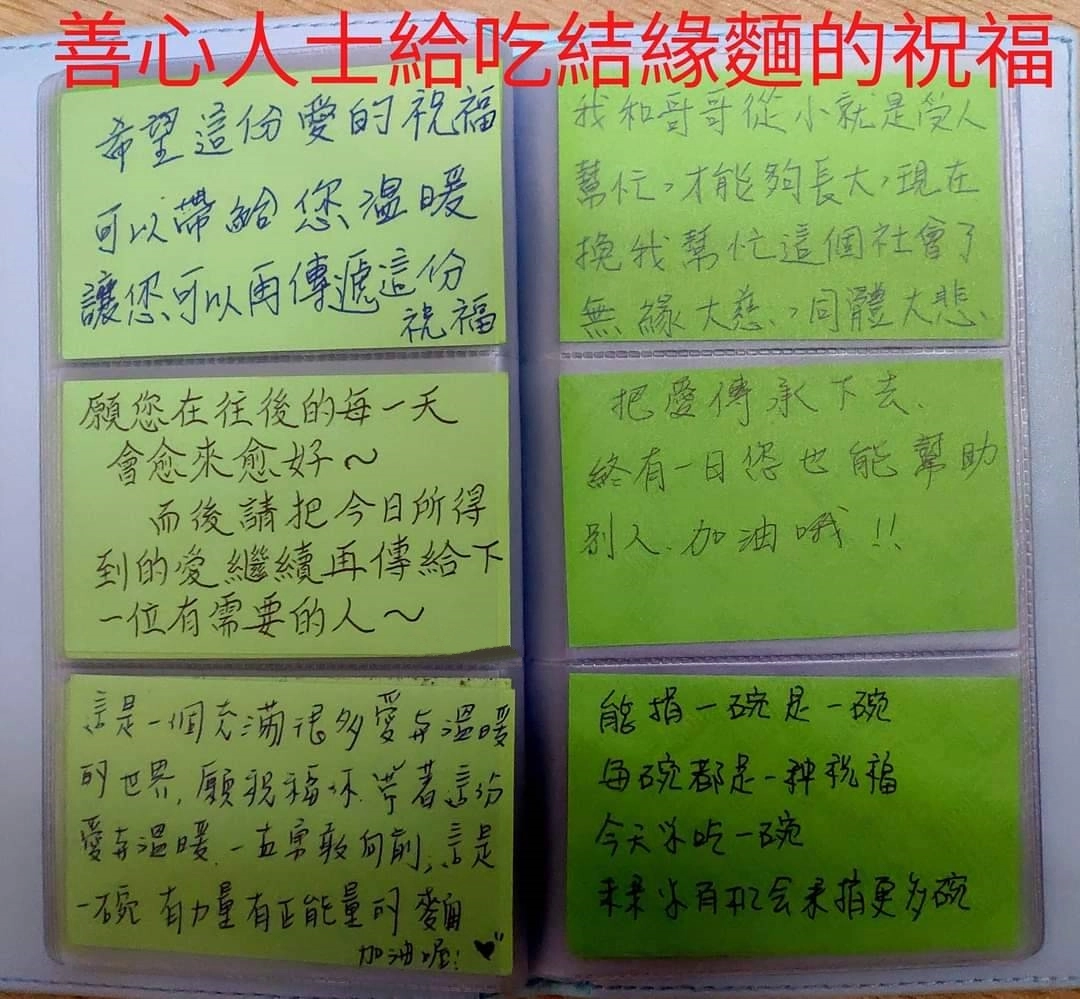 善心人士給吃結緣麵的祝福
希望這份愛的祝福
可以帶給您溫暖
讓您可以再傳遞這份
祝福
願您在往後的每一天
會愈來愈好～
而後請把今日所得
到的愛繼續再傳給下
一位有需要的人～
這是一個充滿很多愛与溫暖
的世界,願祝福你帶著這份
愛与溫暖,一直勇敢向前,這是
一碗有力量有正能量的麵
加油喔!♥
我和哥哥從小就是受人
幫忙,才能夠長大,現在
換我幫忙這個社會了
無緣大慈,同體大悲.
把愛傳承下去.
終有一日您也能幫助
別人.加油哦!!
能捐一碗是一碗
每碗都是一种祝福
今天你吃一碗
未來你有机会來捐更多碗